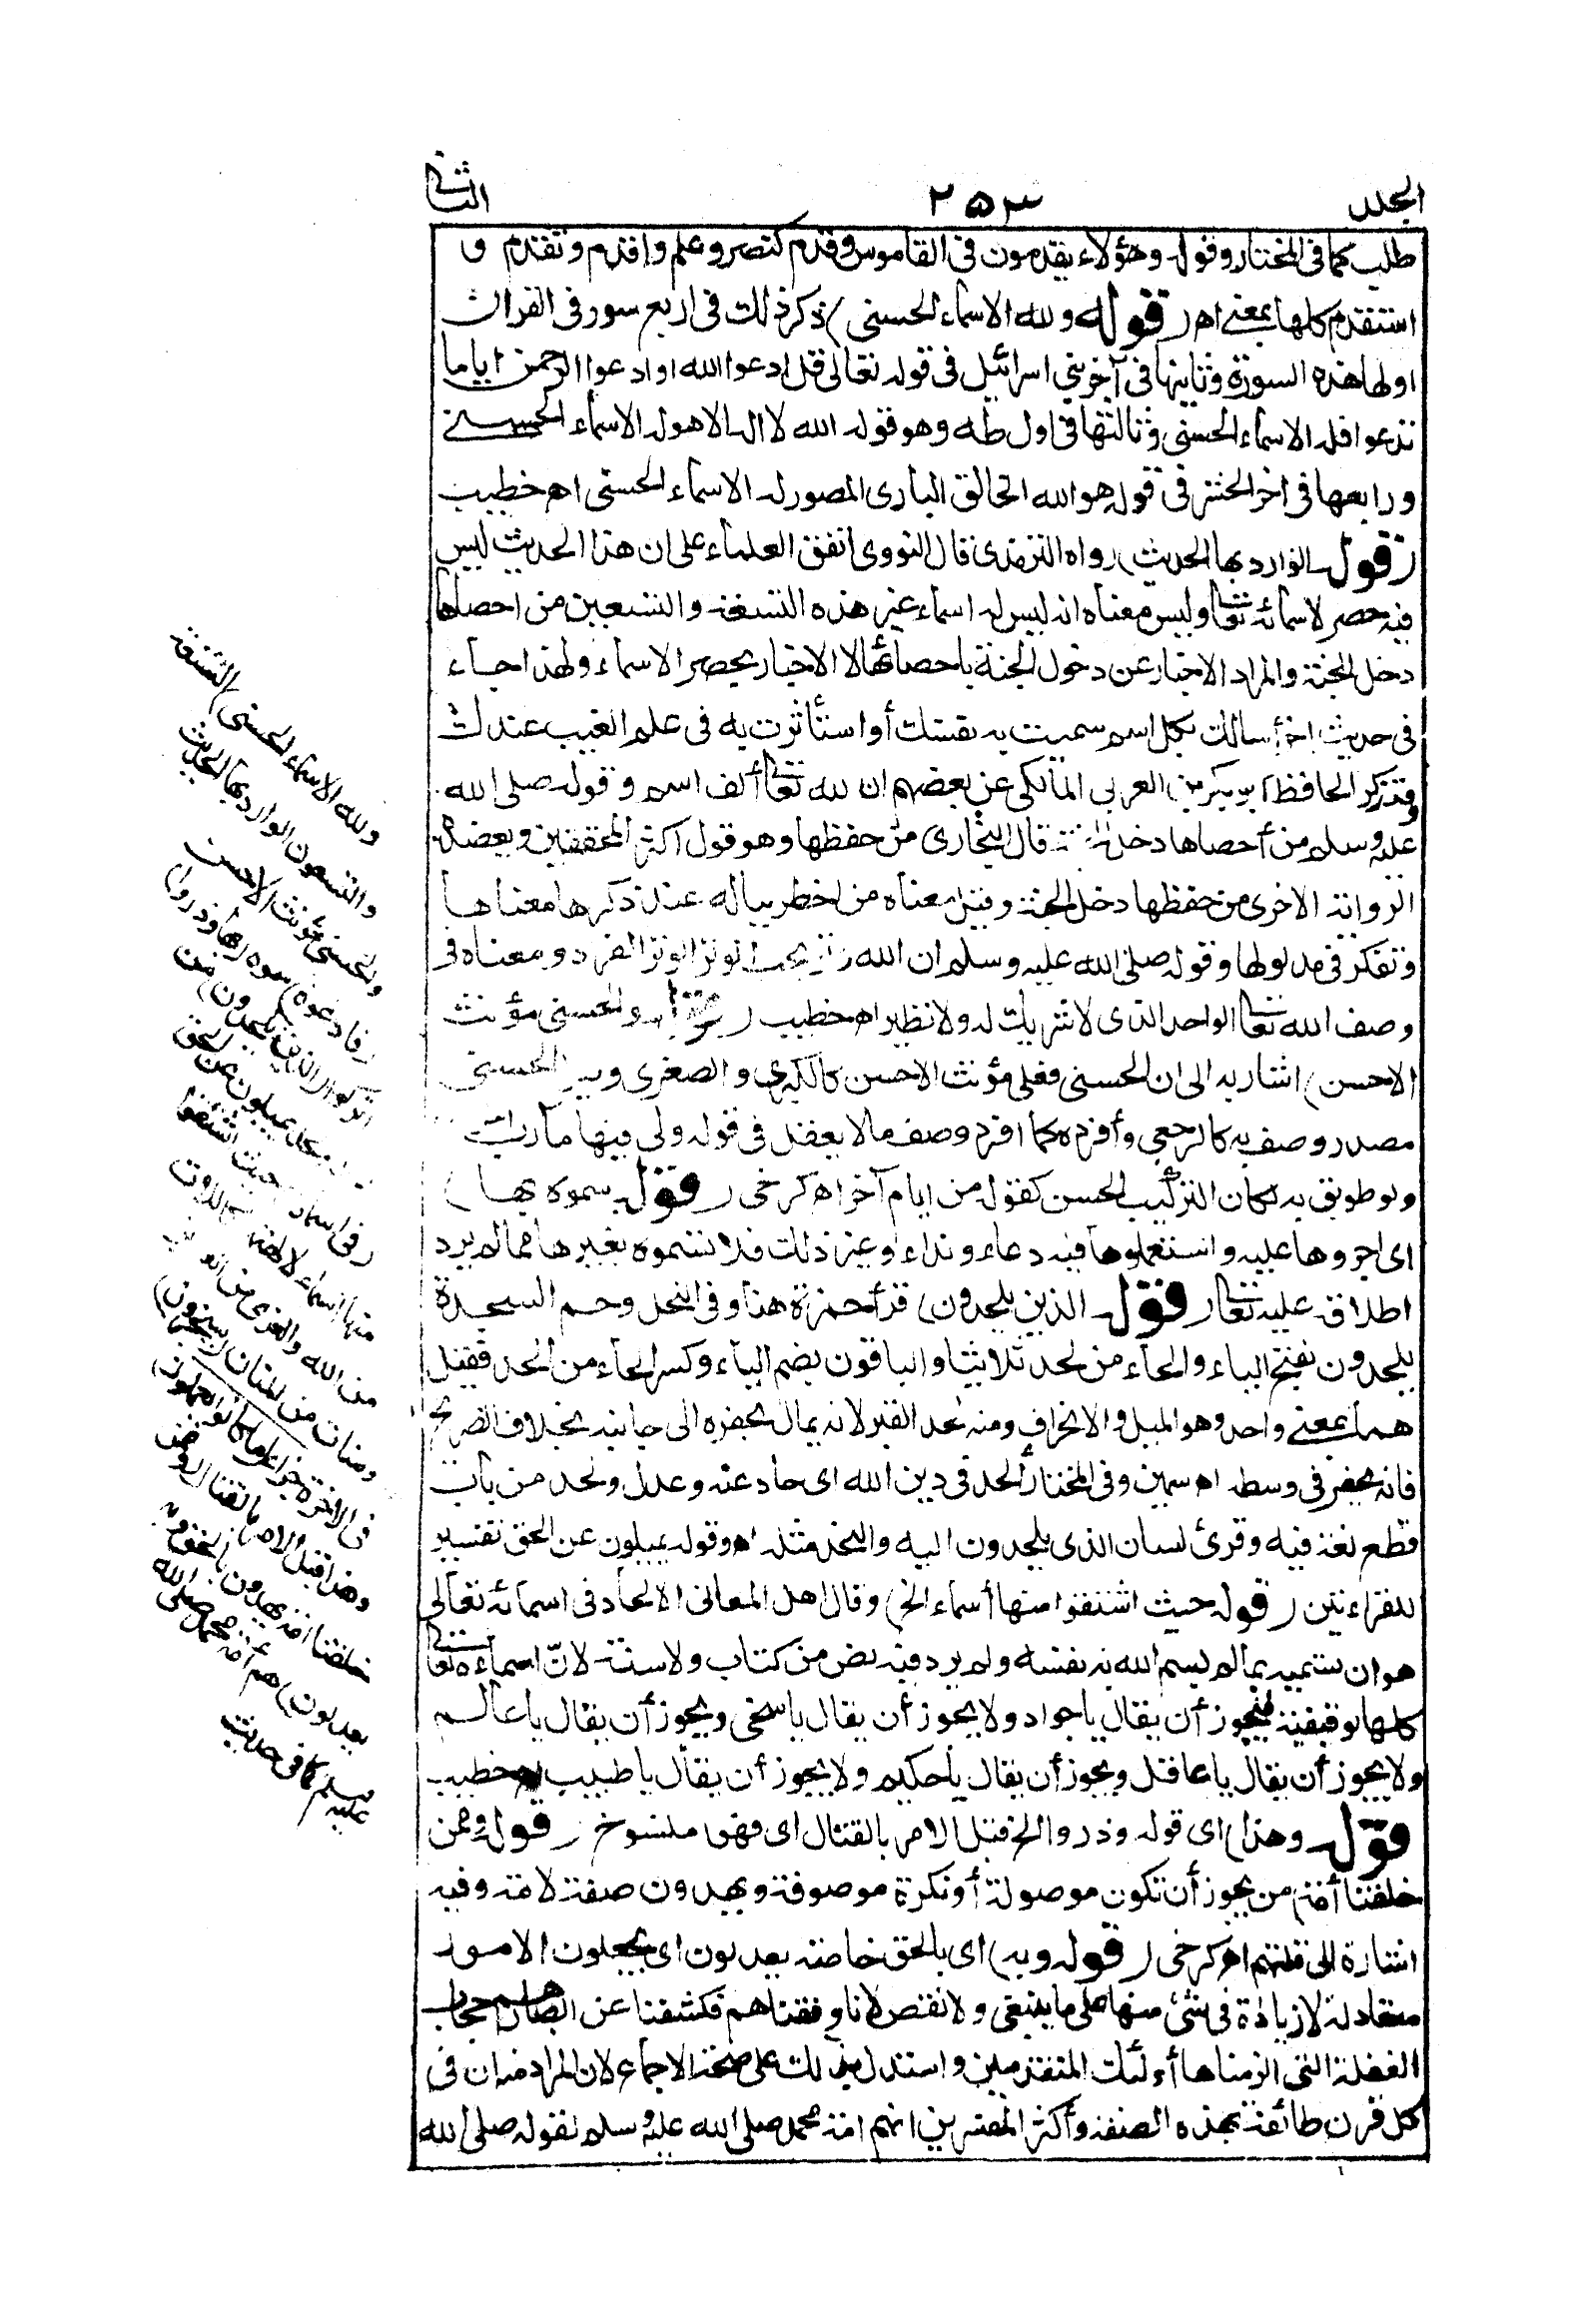 الجلد
٢٥٣
الثانى
طلب كما فى المختار وقوله وهؤلاء يقدمون فى القاموس وقدم كنصر وعلم واقدم وتقدم و
استقدم كلها بمعنى اهـ (قوله ولله الاسماء الحسنى) ذكر ذلك فى اربع سور فى القران
اولها هذه السورة وثانيتها فى آخر بنى اسرائيل فى قوله تعالى قل ادعوا الله او ادعوا الرحمن اياما
تدعوا فله الاسماء الحسنى وثالثتها فى اول طه وهو قوله الله لا اله الا هو له الاسماء الحسنى
ورابعها فى اخر الحشر فى قوله هو الله الخالق البارى المصور له الاسماء الحسنى اهـ خطيب
(قوله الوارد بها الحديث) رواه الترمذى قال النووى اتفق العلماء على ان هذا الحديث ليس
فيه حصر لاسمائه تعالى وليس معناه انه ليس له اسماء غير هذه التسعة والتسعين من احصاها
دخل الجنة والمراد الاخبار عن دخول الجنة باحصائها لا الاخبار بحصر الاسماء ولهذا جاء
فى حديث اخر أسالك بكل اسم سميت به نفسك أو استأثرت به فى علم الغيب عندك
وقد ذكر الحافظ ابو بكر بن العربى المالكى عن بعضهم ان لله تعالى ألف اسم وقوله صلى الله
عليه وسلم من أحصاها دخل الجنة قال البخارى من حفظها وهو قول اكثر المحققين ويعضده
الرواية الاخرى من حفظها دخل الجنة وقيل معناه من اخطر بباله عند ذكرها معناها
وتفكر فى مدلولها وقوله صلى الله عليه وسلم ان الله وتر يحب الوتر الوتر الفرد ومعناه فى
وصف الله تعالى الواحد الذى لا شريك له ولا نظير اهـ خطيب (قوله والحسنى مؤنث
الاحسن) اشار به الى ان الحسنى فعلى مؤنث الاحسن كالكبرى والصغرى وقيل الحسنى
مصدر وصف به كالرجعى وأفرده كما افرد وصف ما لا يعقل فى قوله ولى فيها مآرب
ولو طوبق به لكان التركيب الحسن كقوله من ايام آخر اهـ كرخى (قوله سموه بها)
اى اجروها عليه واستعملوها فيه دعاء ونداء وغير ذلك فلا تسموه بغيرها مما لم يرد
اطلاقه عليه تعالى (قوله الذين يلحدون) قرأ حمزة هنا وفى النحل وحم السجدة
يلحدون بفتح الياء والحاء من لحد ثلاثيا والباقون بضم الياء وكسر الحاء من الحد فقيل
هما بمعنى واحد وهو الميل والانحراف ومنه لحد القبر لانه يمال بحفره الى جانبه بخلاف الضريح
فانه يحفر فى وسطه اهـ سمين وفى المختار ألحد فى دين الله اى حاد عنه وعدل ولحد من باب
قطع لغة فيه وقرئ لسان الذى يلحدون اليه والتحد مثله اهـ وقوله يميلون عن الحق تفسير
للقراءتين (قوله حيث اشتقوا منها أسماء الخ) وقال اهل المعانى الالحاد فى اسمائه تعالى
هو ان تسميه بما لم يسم الله به نفسه ولم يرد فيه نص من كتاب ولا سنة لانّ اسماءه تعالى
كلها توقيفية فيجوز أن يقال يا جواد ولا يجوز أن يقال يا سخى ويجوز أن يقال يا عالم
ولا يجوز أن يقال يا عاقل ويجوز أن يقال يا حكيم ولا يجوز أن يقال يا طبيب اهـ خطيب
(قوله وهذا) اى قوله وذروا الخ قبل الامر بالقتال اى فهو منسوخ (قوله وممن
خلقنا أمة) من يجوز أن تكون موصولة أو نكرة موصوفة ويهدون صفة لامة وفيه
اشارة الى قلتهم اهـ كرخى (قوله وبه) اى بالحق خاصة يعدلون اى يجعلون الامور
متعادلة لا زيادة فى شئ منها على ما ينبغى ولا نقص لانا وفقناهم فكشفنا عن ابصارهم حجاب
الغفلة التى الزمناها أولئك المتقدمين واستدل بذلك على صحة الاجماع لان المراد منه ان فى
كل قرن طائفة بهذه الصفة وأكثر المفسرين انهم امة محمد صلى الله عليه وسلم لقوله صلى الله
ولله الاسماء الحسنى) التسعة
والتسعون الوارد بها الحديث
والحسنى مؤنث الاحسن
(فادعوه) سموه (بها وذروا)
اتركوا (الذين يلحدون) من
يميلون عن الحق
(فى اسمائه) حيث اشتقوا
منها اسماء لالهتهم كاللات
من الله والعزى من العزيز
ومنات من المنان (سيجزون)
فى الاخرة جزاء (ما كانوا يعملون)
وهذا قبل الامر بالقتال (وممن
خلقنا امة يهدون بالحق وبه
يعدلون) هم أمة محمد صلى الله
عليه وسلم كما فى حديث